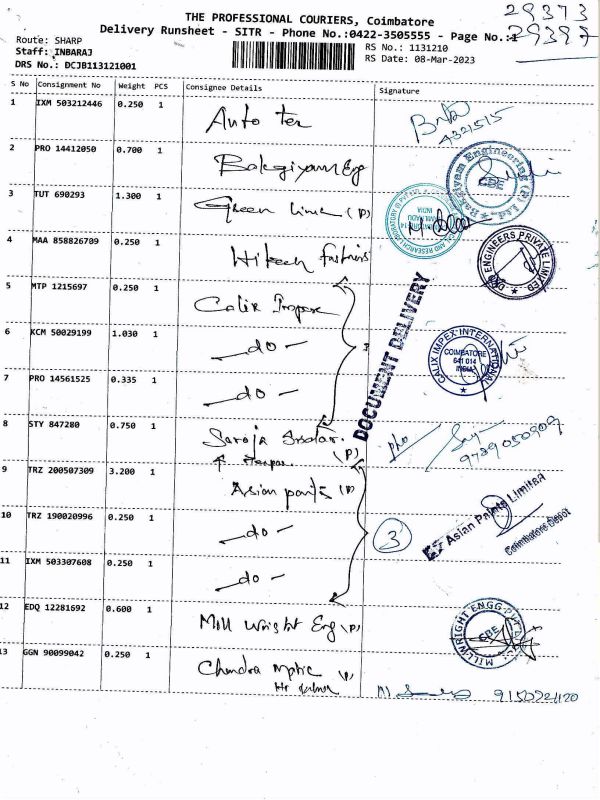 29373
THE PROFESSIONAL COURIERS, Coimbatore
Delivery Runsheet - SITR - Phone No.:0422-3505555 - Page No.:1
29397
Route: SHARP
Staff: INBARAJ
DRS No.: DCJB113121001
RS No.: 1131210
RS Date: 08-Mar-2023
S No Consignment No Weight PCS Consignee Details Signature
1 IXM 503212446 0.250 1 Auto tex
2 PRO 14412050 0.700 1 Bakgiyam Eng
Bakgiyam Engineering (P) Ltd.
CBE
3 TUT 690293 1.300 1 Green (P)
4 MAA 858826709 0.250 1 Hitech
ENGINEERS PRIVATE LIMITED
5 MTP 1215697 0.250 1 Calix
DOCUMENT DELIVERY
6 KCM 50029199 1.030 1 do
CALIX IMPEX INTERNATIONAL
COIMBATORE
641 014
INDIA
7 PRO 14561525 0.335 1 do
8 STY 847280 0.750 1 Saroja (P)
9 TRZ 200507309 3.200 1 Asian paints (P)
Asian Paints Limited
Coimbatore Depot
10 TRZ 190020996 0.250 1 do
3
11 IXM 503307608 0.250 1 do
12 EDQ 12281692 0.600 1 Mill Wright Eng (P)
CBE
13 GGN 90099042 0.250 1 Chandra (P)